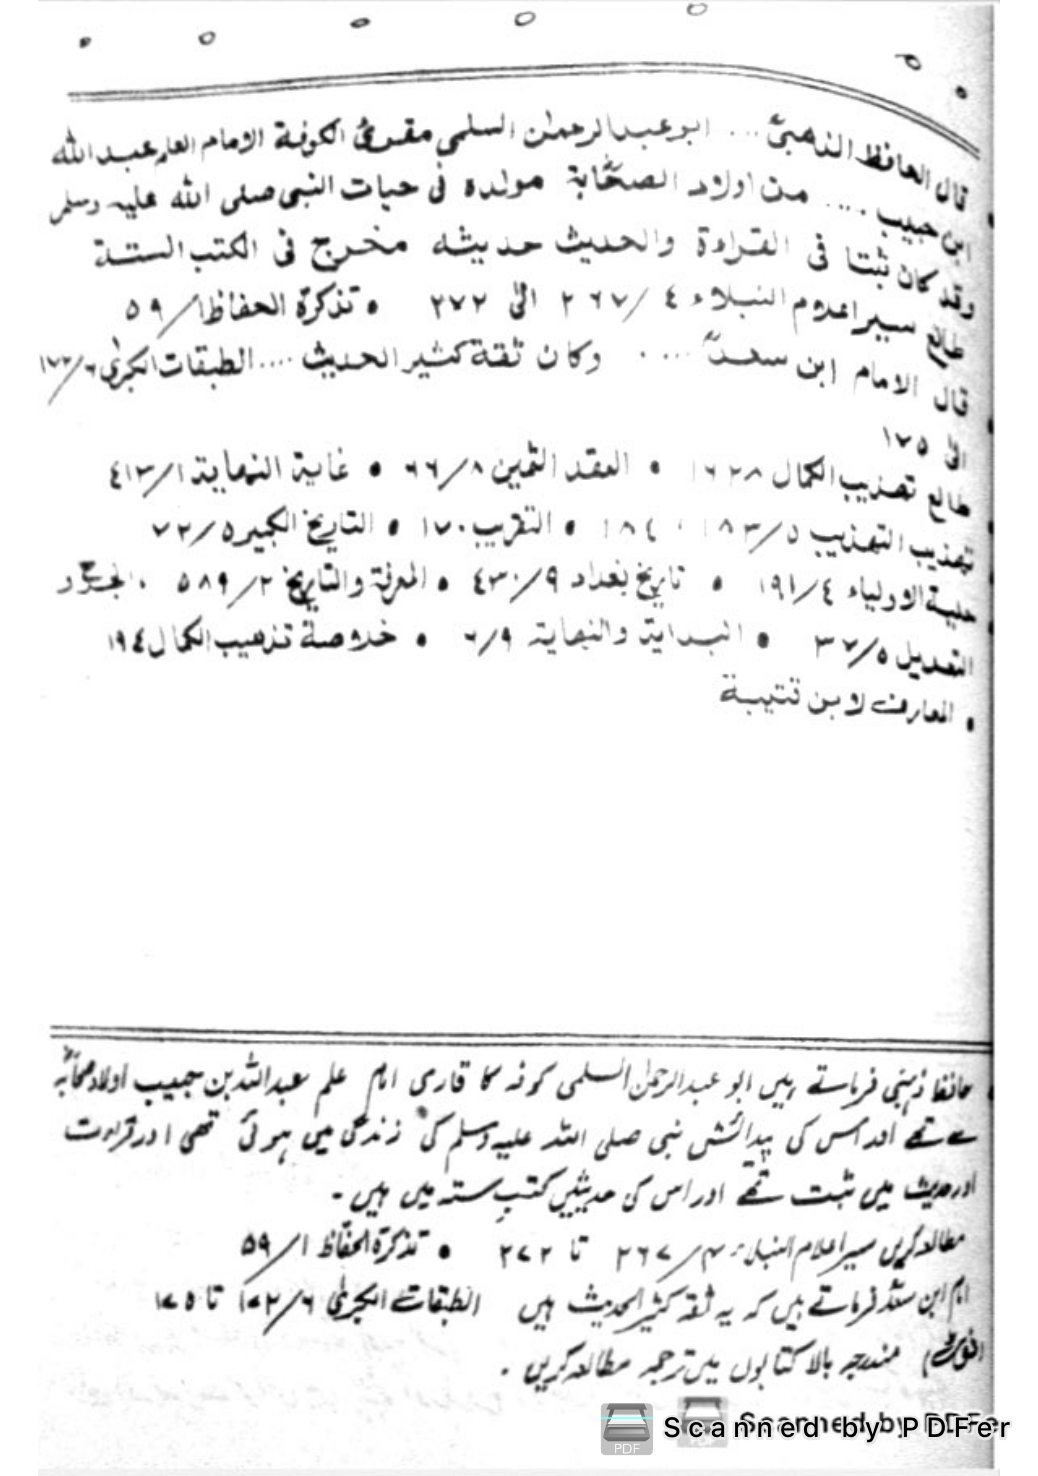 قال الحافظ الذهبیؒ .... ابو عبدالرحمٰن السلمی مقرئ الکوفة الامام العلم عبدالله
ابن حبیب .... من اولاد الصحابة مولدہ فی حیات النبی صلی الله علیہ وسلم
وقد کان ثبتا فی القراءة والحدیث حدیثه مخرج فی الکتب الستة
طالع سیر اعلام النبلاء ٤/ ٢٦٧ الی ٢٧٢ • تذکرة الحفاظ ١/ ٥٩
• قال الامام ابن سعدؒ .... وکان ثقة کثیر الحدیث .... الطبقات الکبریٰ ٦/ ١٧٢
الی ١٧٥
• طالع تهذیب الکمال ١٦٢٨ • العقد الثمین ٨/ ٦٦ • غایة النهایة ١/ ٤١٣
تهذیب التهذیب ٥/ ١٨٣، ١٨٤ • التقریب ١٧٠ • التاریخ الکبیر ٥/ ٧٢
حلیة الاولیاء ٤/ ١٩١ • تاریخ بغداد ٩/ ٤٣٠ • المعرفة والتاریخ ٢/ ٥٨٩ • الجرح و
التعدیل ٥/ ٣٧ • البدایة والنهایة ٩/ ٦ • خلاصة تذهیب الکمال ١٩٤
• المعارف لابن قتیبة
• حافظ ذہبی فرماتے ہیں ابو عبدالرحمٰن السلمی کوفہ کا قاری امام علم عبداللہ بن حبیب اولاد صحابہؓ
سے تھے اور اس کی پیدائش نبی صلی اللہ علیہ وسلم کی زندگی میں ہوئی تھی اور قراءت
اور حدیث میں ثبت تھے اور اس کی حدیثیں کتب ستہ میں ہیں ۔
مطالعہ کریں سیر اعلام النبلاء ۴/ ۲۶۷ تا ۲۷۲ • تذکرۃ الحفاظ ۱/ ۵۹
امام ابن سعدؒ فرماتے ہیں کہ یہ ثقہ کثیر الحدیث ہیں الطبقات الکبریٰ ۶/ ۱۷۲ تا ۱۷۵
(نوٹ) مندرجہ بالا کتابوں میں ترجمہ مطالعہ کریں ۔
PDF Scanned by PDFer